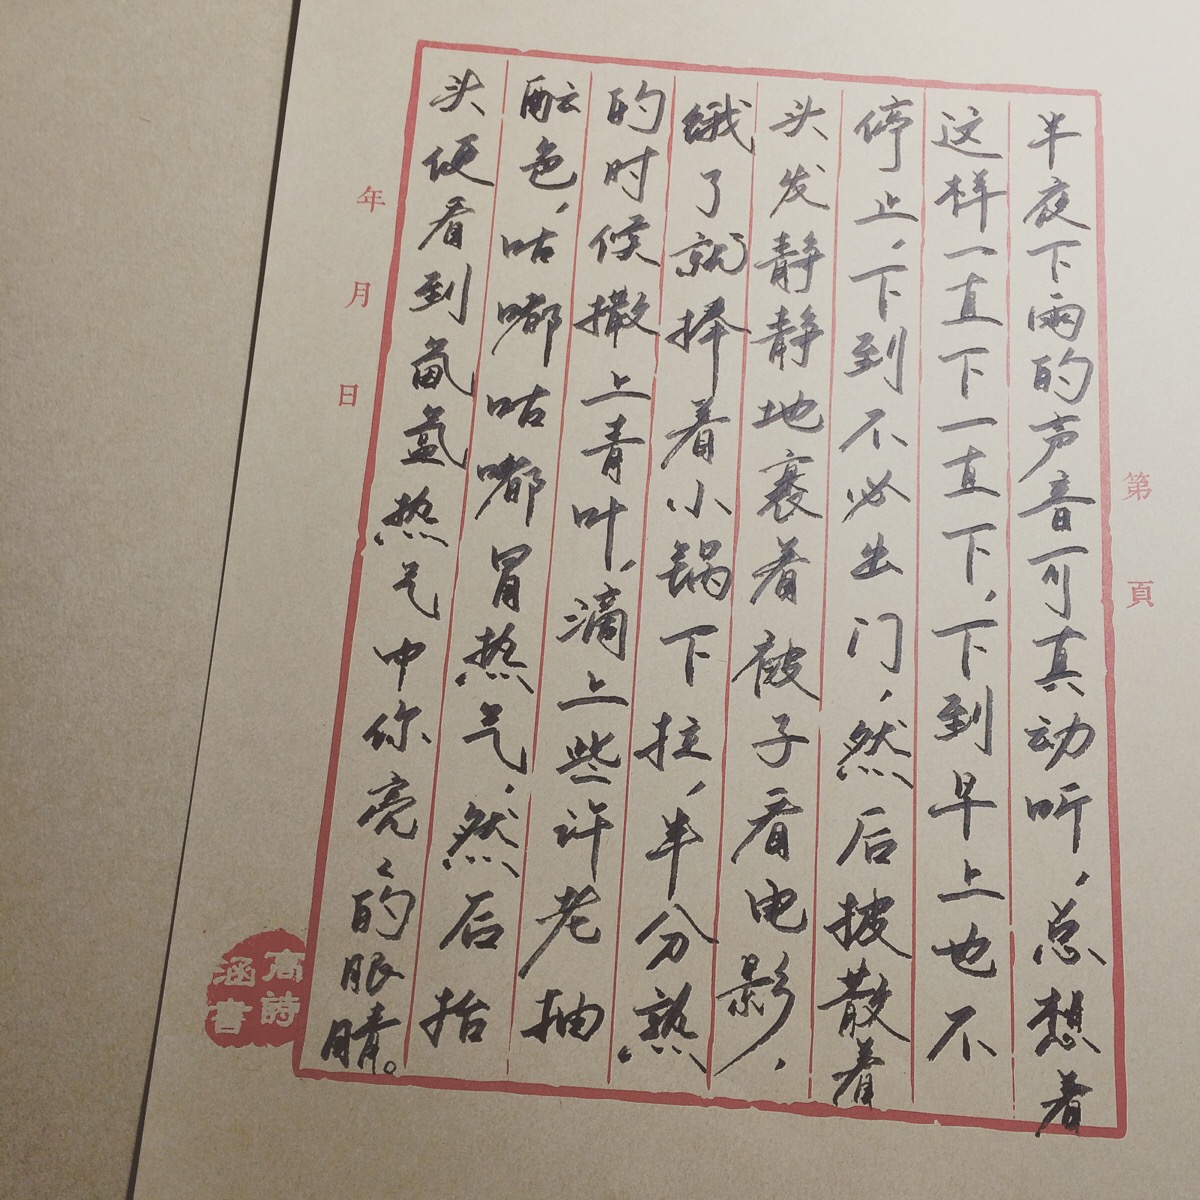 半夜下雨的声音可真动听，总想着
这样一直下一直下，下到早上也不
停止，下到不必出门，然后披散着
头发静静地裹着被子看电影，
饿了就捧着小锅下拉，半分熟
的时候撒上青叶，滴上些许老抽
酝色，咕嘟咕嘟冒热气，然后抬
头便看到氤氲热气中你亮々的眼睛。
第 頁
年 月 日
高詩
涵書